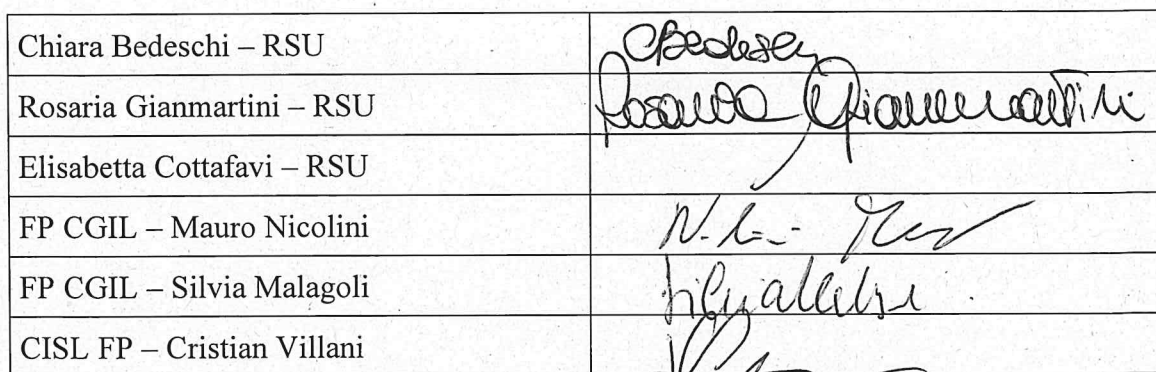 Chiara Bedeschi – RSU
CBedeschi
Rosaria Gianmartini – RSU
Rosaria Gianmartini
Elisabetta Cottafavi – RSU
FP CGIL – Mauro Nicolini
FP CGIL – Silvia Malagoli
CISL FP – Cristian Villani